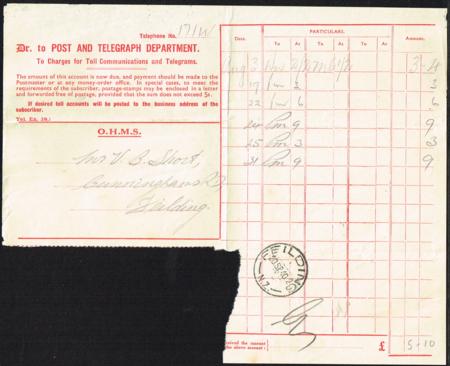 Telephone No. 171/W
Dr. to POST AND TELEGRAPH DEPARTMENT.
To Charges for Toll Communications and Telegrams.
The amount of this account is now due, and payment should be made to the
Postmaster or at any money-order office. In special cases, to meet
the requirements of the subscriber, postage-stamps may be enclosed in a letter
and forwarded free of postage, provided that the sum does not exceed 5s.
If desired toll accounts will be posted to the business address of the
subscriber.
O.H.M.S.
Mr V. B. Short,
Cunninghams Rd
Feilding.
Date. PARTICULARS. Amount.
To At To At To At
Aug 3 3-4
17 Pm 3 3
22 6 6
24 Pm 9 9
25 Pm 3 3
31 Pm 9 9
FEILDING
N.Z.
Received the amount
the above account. £ 5-10